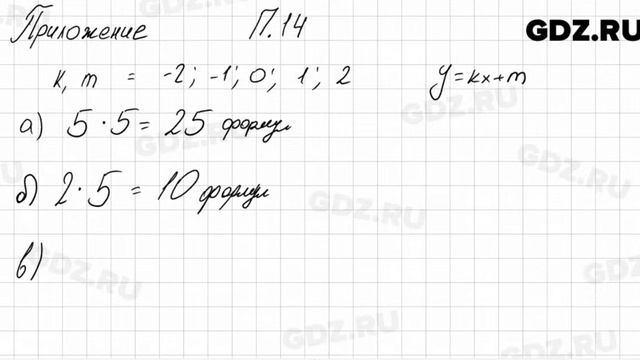 Приложение П.14
GDZ.RU
k, m = -2; -1; 0; 1; 2 y=kx+m
GDZ.RU
а) 5·5=25 формул
GDZ.RU
GDZ.RU
б) 2·5=10 формул
GDZ.RU
в)
GDZ.RU
GDZ.RU
GDZ.RU
GDZ.RU